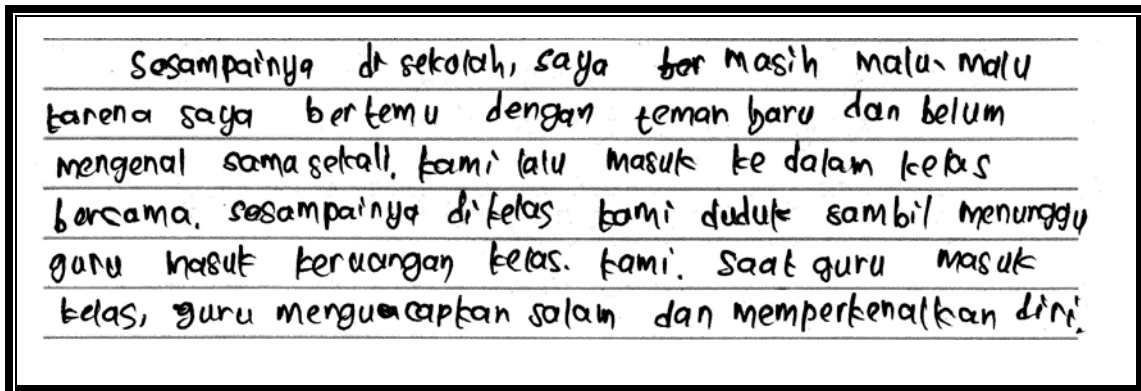 Sesampainya di sekolah, saya ber masih malu-malu
karena saya bertemu dengan teman baru dan belum
mengenal sama sekali. kami lalu masuk ke dalam kelas
bersama. sesampainya di kelas kami duduk sambil menunggu
guru masuk keruangan kelas. kami. Saat guru masuk
kelas, guru menguacapkan salam dan memperkenalkan diri.